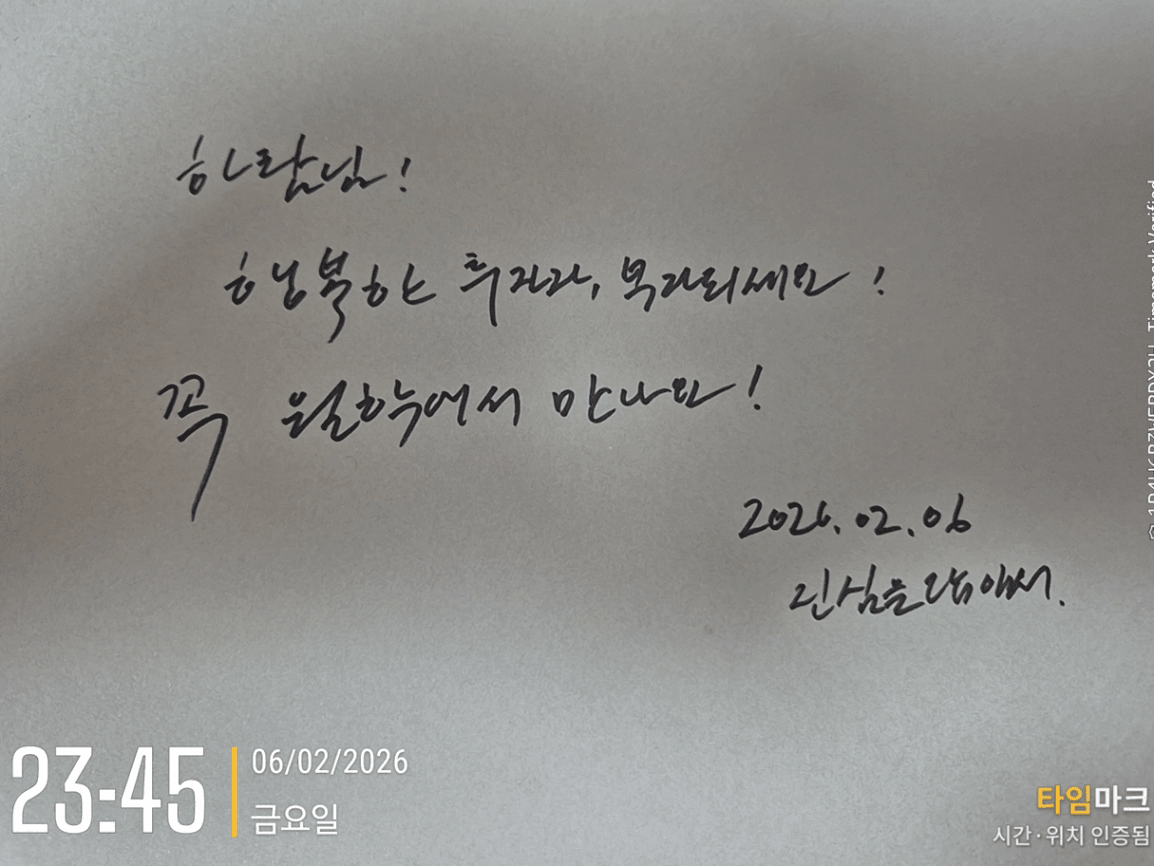 하람님!
행복한 투자라, 복자되세요!
꼭 월학에서 만나요!
2026.02.06
진심을 담아서.
23:45
06/02/2026
금요일
타임마크
시간·위치 인증됨
Timemark Verified